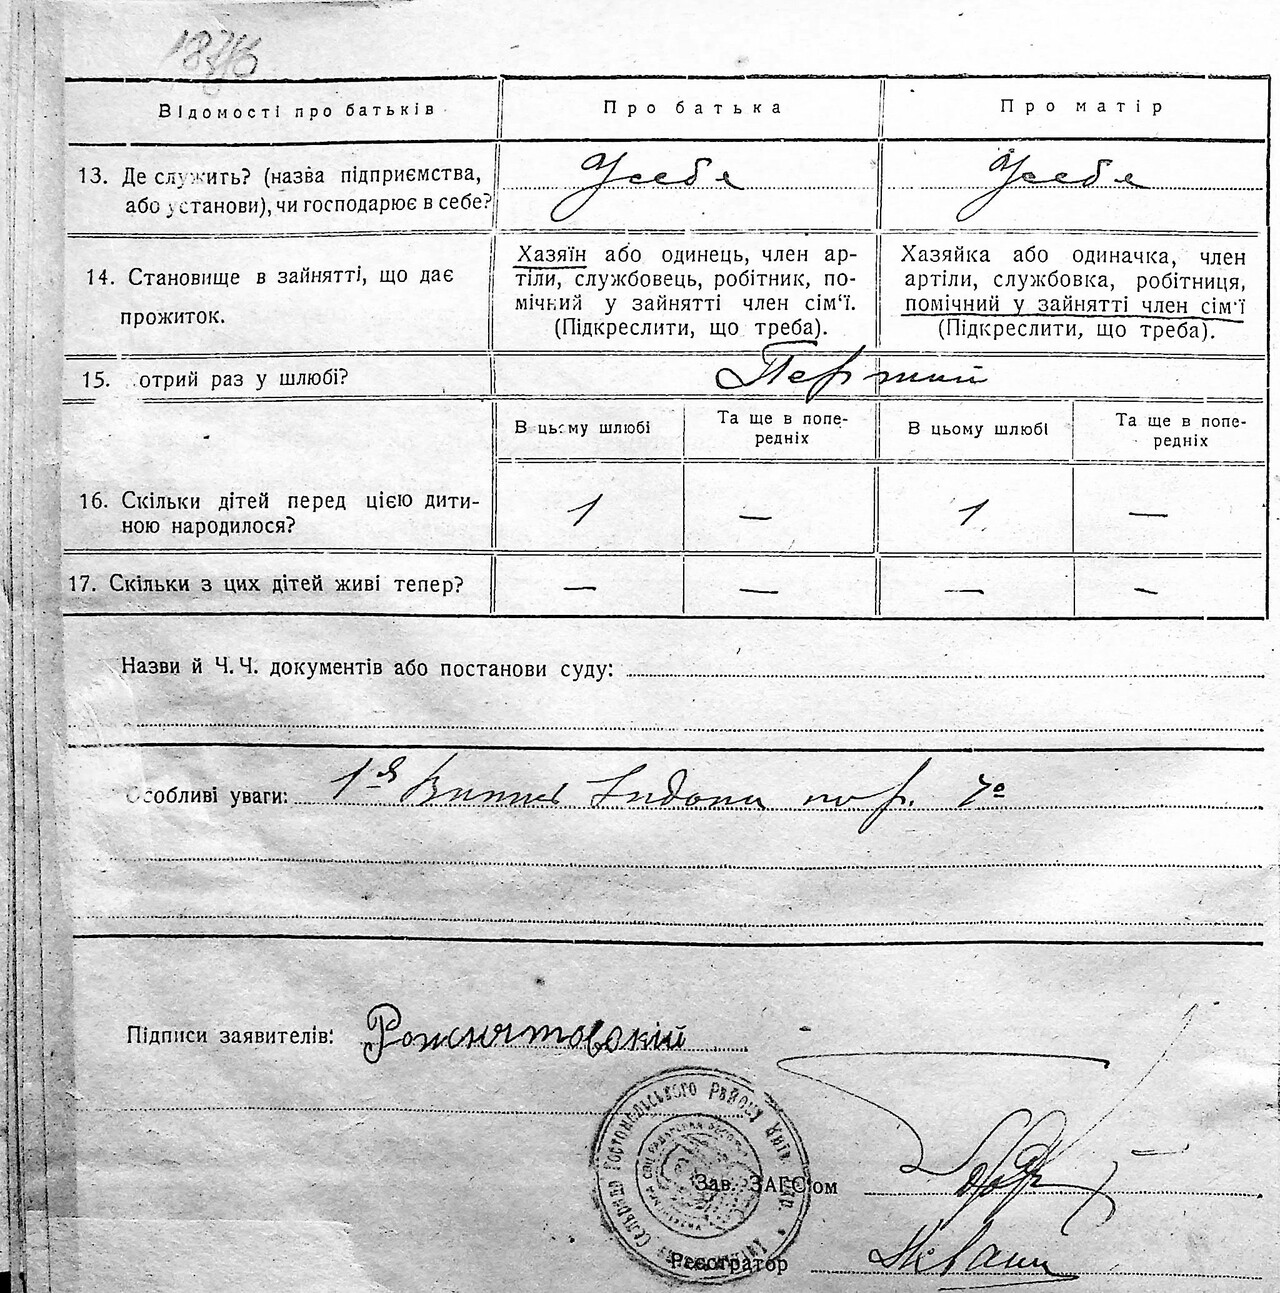 Відомості про батьків
Про батька
Про матір
13. Де служить? (назва підприємства,
або установи), чи господарює в себе?
У себя
У себя
14. Становище в зайнятті, що дає
прожиток.
Хазяїн або одинець, член ар-
тілі, службовець, робітник, по-
мічний у зайнятті член сім'ї.
(Підкреслити, що треба).
Хазяйка або одиначка, член
артіли, службовка, робітниця,
помічний у зайнятті член сім'ї
(Підкреслити, що треба).
15. отрий раз у шлюбі?
Первый
В цьому шлюбі
Та ще в попе-
редніх
В цьому шлюбі
Та ще в попе-
редніх
16. Скільки дітей перед цією дити-
ною народилося?
1 — 1 —
17. Скільки з цих дітей живі тепер?
— — — —
Назви й Ч.Ч. документів або постанови суду:
Особливі уваги: 1-я
Підписи заявителів:
Гостомельського району Київ.
Зав. ЗАГС'ом
Реєстратор